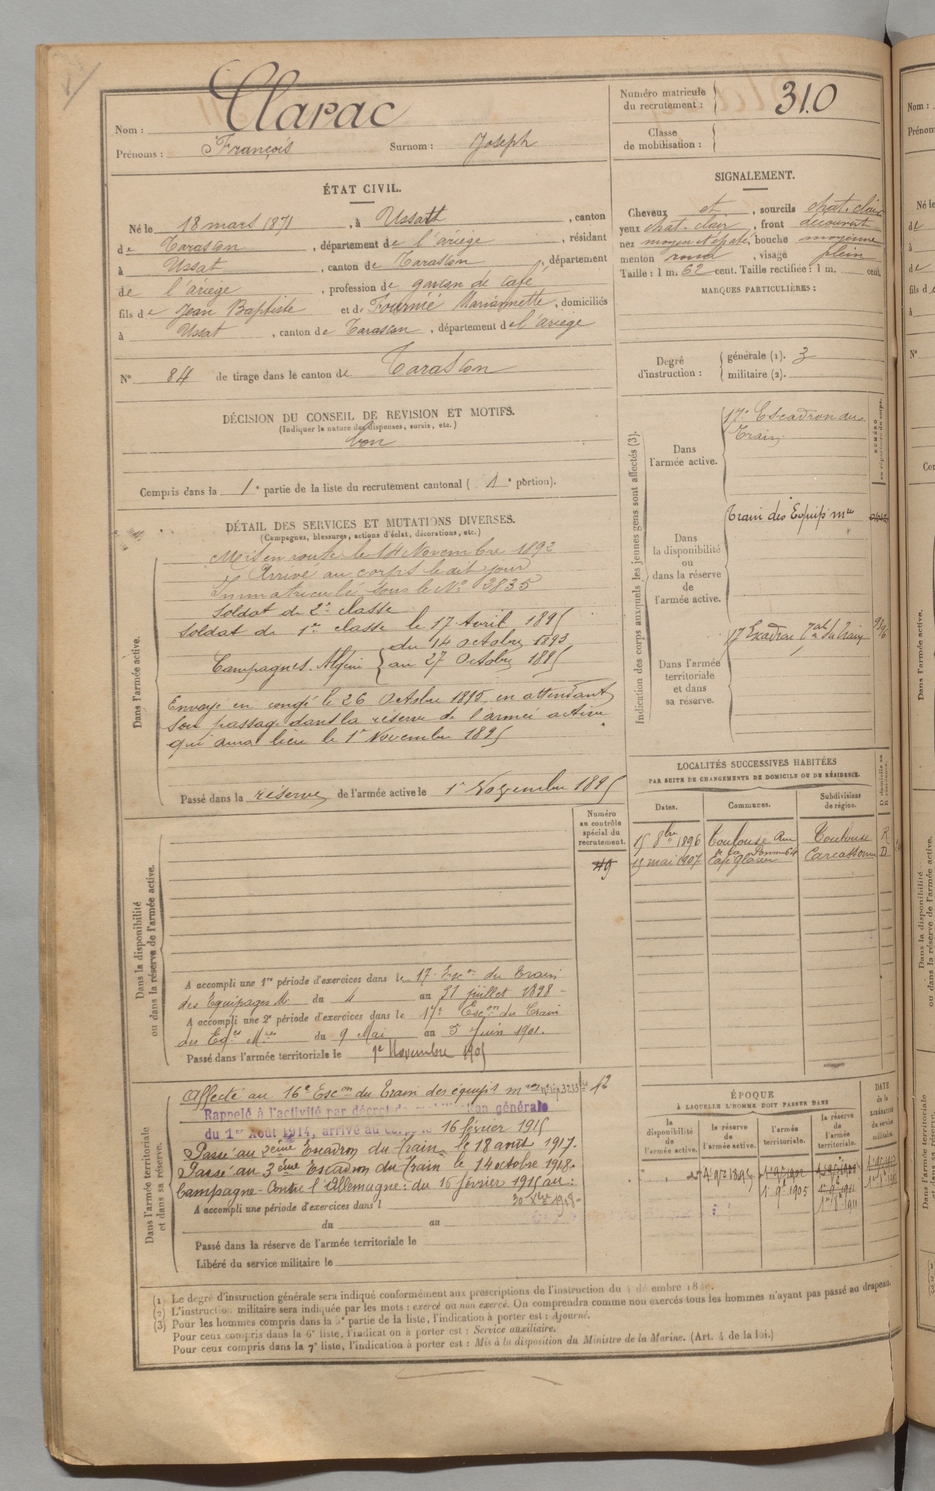 Clarac
Nom :
Prénoms : François Surnom : Joseph
Numéro matricule du recrutement : 310
Classe de mobilisation :
ÉTAT CIVIL.
Né le 18 mars 1871, à Ussat, canton
de Tarascon, département de l'ariège, résidant
à Ussat, canton de Tarascon, département
de l'ariège, profession de garçon de café
fils de Jean Baptiste et de Fournié Mariannette, domiciliés
à Ussat, canton de Tarascon, département de l'ariège
N° 84 de tirage dans le canton de Tarascon
SIGNALEMENT.
Cheveux et, sourcils chat. clair
yeux chat. clair, front découvert
nez moyen et épaté, bouche moyenne
menton rond, visage plein
Taille : 1 m. 62 cent. Taille rectifiée : 1 m. cent.
MARQUES PARTICULIÈRES :
Degré d'instruction : générale (1). 3
militaire (2).
DÉCISION DU CONSEIL DE REVISION ET MOTIFS.
(Indiquer la nature des dispenses, sursis, etc.)
bon
Compris dans la 1e partie de la liste du recrutement cantonal ( 1e portion).
DÉTAIL DES SERVICES ET MUTATIONS DIVERSES.
(Campagnes, blessures, actions d'éclat, décorations, etc.)
Dans l'armée active.
Mis en route le 14 Novembre 1892
Arrivé au corps le dit jour
Immatriculé sous le N° 3835
Soldat de 2e classe
Soldat de 1re classe le 17 Avril 1895
Campagnes. Algérie du 14 octobre 1893
au 27 Octobre 1895
Envoyé en congé le 26 Octobre 1895 en attendant
son passage dans la réserve de l'armée active
qui aura lieu le 1er Novembre 1895
Passé dans la réserve de l'armée active le 1er Novembre 1895
Indication des corps auxquels les jeunes gens sont affectés (3).
Dans l'armée active.
17e Escadron du
Train
Dans la disponibilité ou dans la réserve de l'armée active.
Train des Equip mres
Dans l'armée territoriale et dans sa réserve.
17 Escadron du Train
LOCALITÉS SUCCESSIVES HABITÉES
PAR SUITE DE CHANGEMENTS DE DOMICILE OU DE RÉSIDENCE.
Dates. Communes. Subdivisions de région.
15 8bre 1896 Toulouse Rue Toulouse R
15 mai 1907 Carcassonne D
Dans la disponibilité ou dans la réserve de l'armée active.
Numéro au contrôle spécial du recrutement.
A accompli une 1re période d'exercices dans le 17e Escon du Train
des Equipages M. du 4 au 31 juillet 1898
A accompli une 2e période d'exercices dans le 17e Escon du Train
des Eqges Mres du 9 Mai au 5 Juin 1901.
Passé dans l'armée territoriale le 1er Novembre 1905
Dans l'armée territoriale et dans sa réserve.
Affecté au 16e Escon du Train des équip. mres 12
Rappelé à l'activité par décret de mobilisation générale
du 1er Août 1914, arrivé au corps le 16 février 1915
Passé au 2eme Escadron du Train le 18 août 1917.
Passé au 3eme Escadron du Train le 14 octobre 1918.
Campagne Contre l'Allemagne : du 15 février 1915 au :
A accompli une période d'exercices dans l
du au
Passé dans la réserve de l'armée territoriale le
Libéré du service militaire le
ÉPOQUE
À LAQUELLE L'HOMME DOIT PASSER DANS
la disponibilité de l'armée active. la réserve de l'armée active. l'armée territoriale. la réserve de l'armée territoriale.
DATE de la libération du service militaire.
1 9bre 1895
1 9e 1905
(1) Le degré d'instruction générale sera indiqué conformément aux prescriptions de l'instruction du
(2) L'instruction militaire sera indiquée par les mots : exercé ou non exercé. On comprendra comme non exercés tous les hommes n'ayant pas passé au drapeau.
(3) Pour les hommes compris dans la 5e partie de la liste, l'indication à porter est : Ajourné.
Pour ceux compris dans la 6e liste, l'indication à porter est : Service auxiliaire.
Pour ceux compris dans la 7e liste, l'indication à porter est : Mis à la disposition du Ministre de la Marine. (Art. 4 de la loi.)